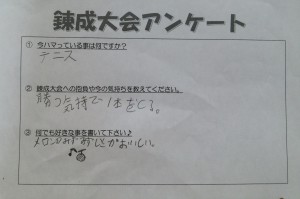 錬成大会アンケート
① 今ハマっている事は何ですか？
テニス
② 錬成大会への抱負や今の気持ちを教えてください。
勝つ気持で1本をとる。
③ 何でも好きな事を書いて下さい♪
メロンがおいしい。